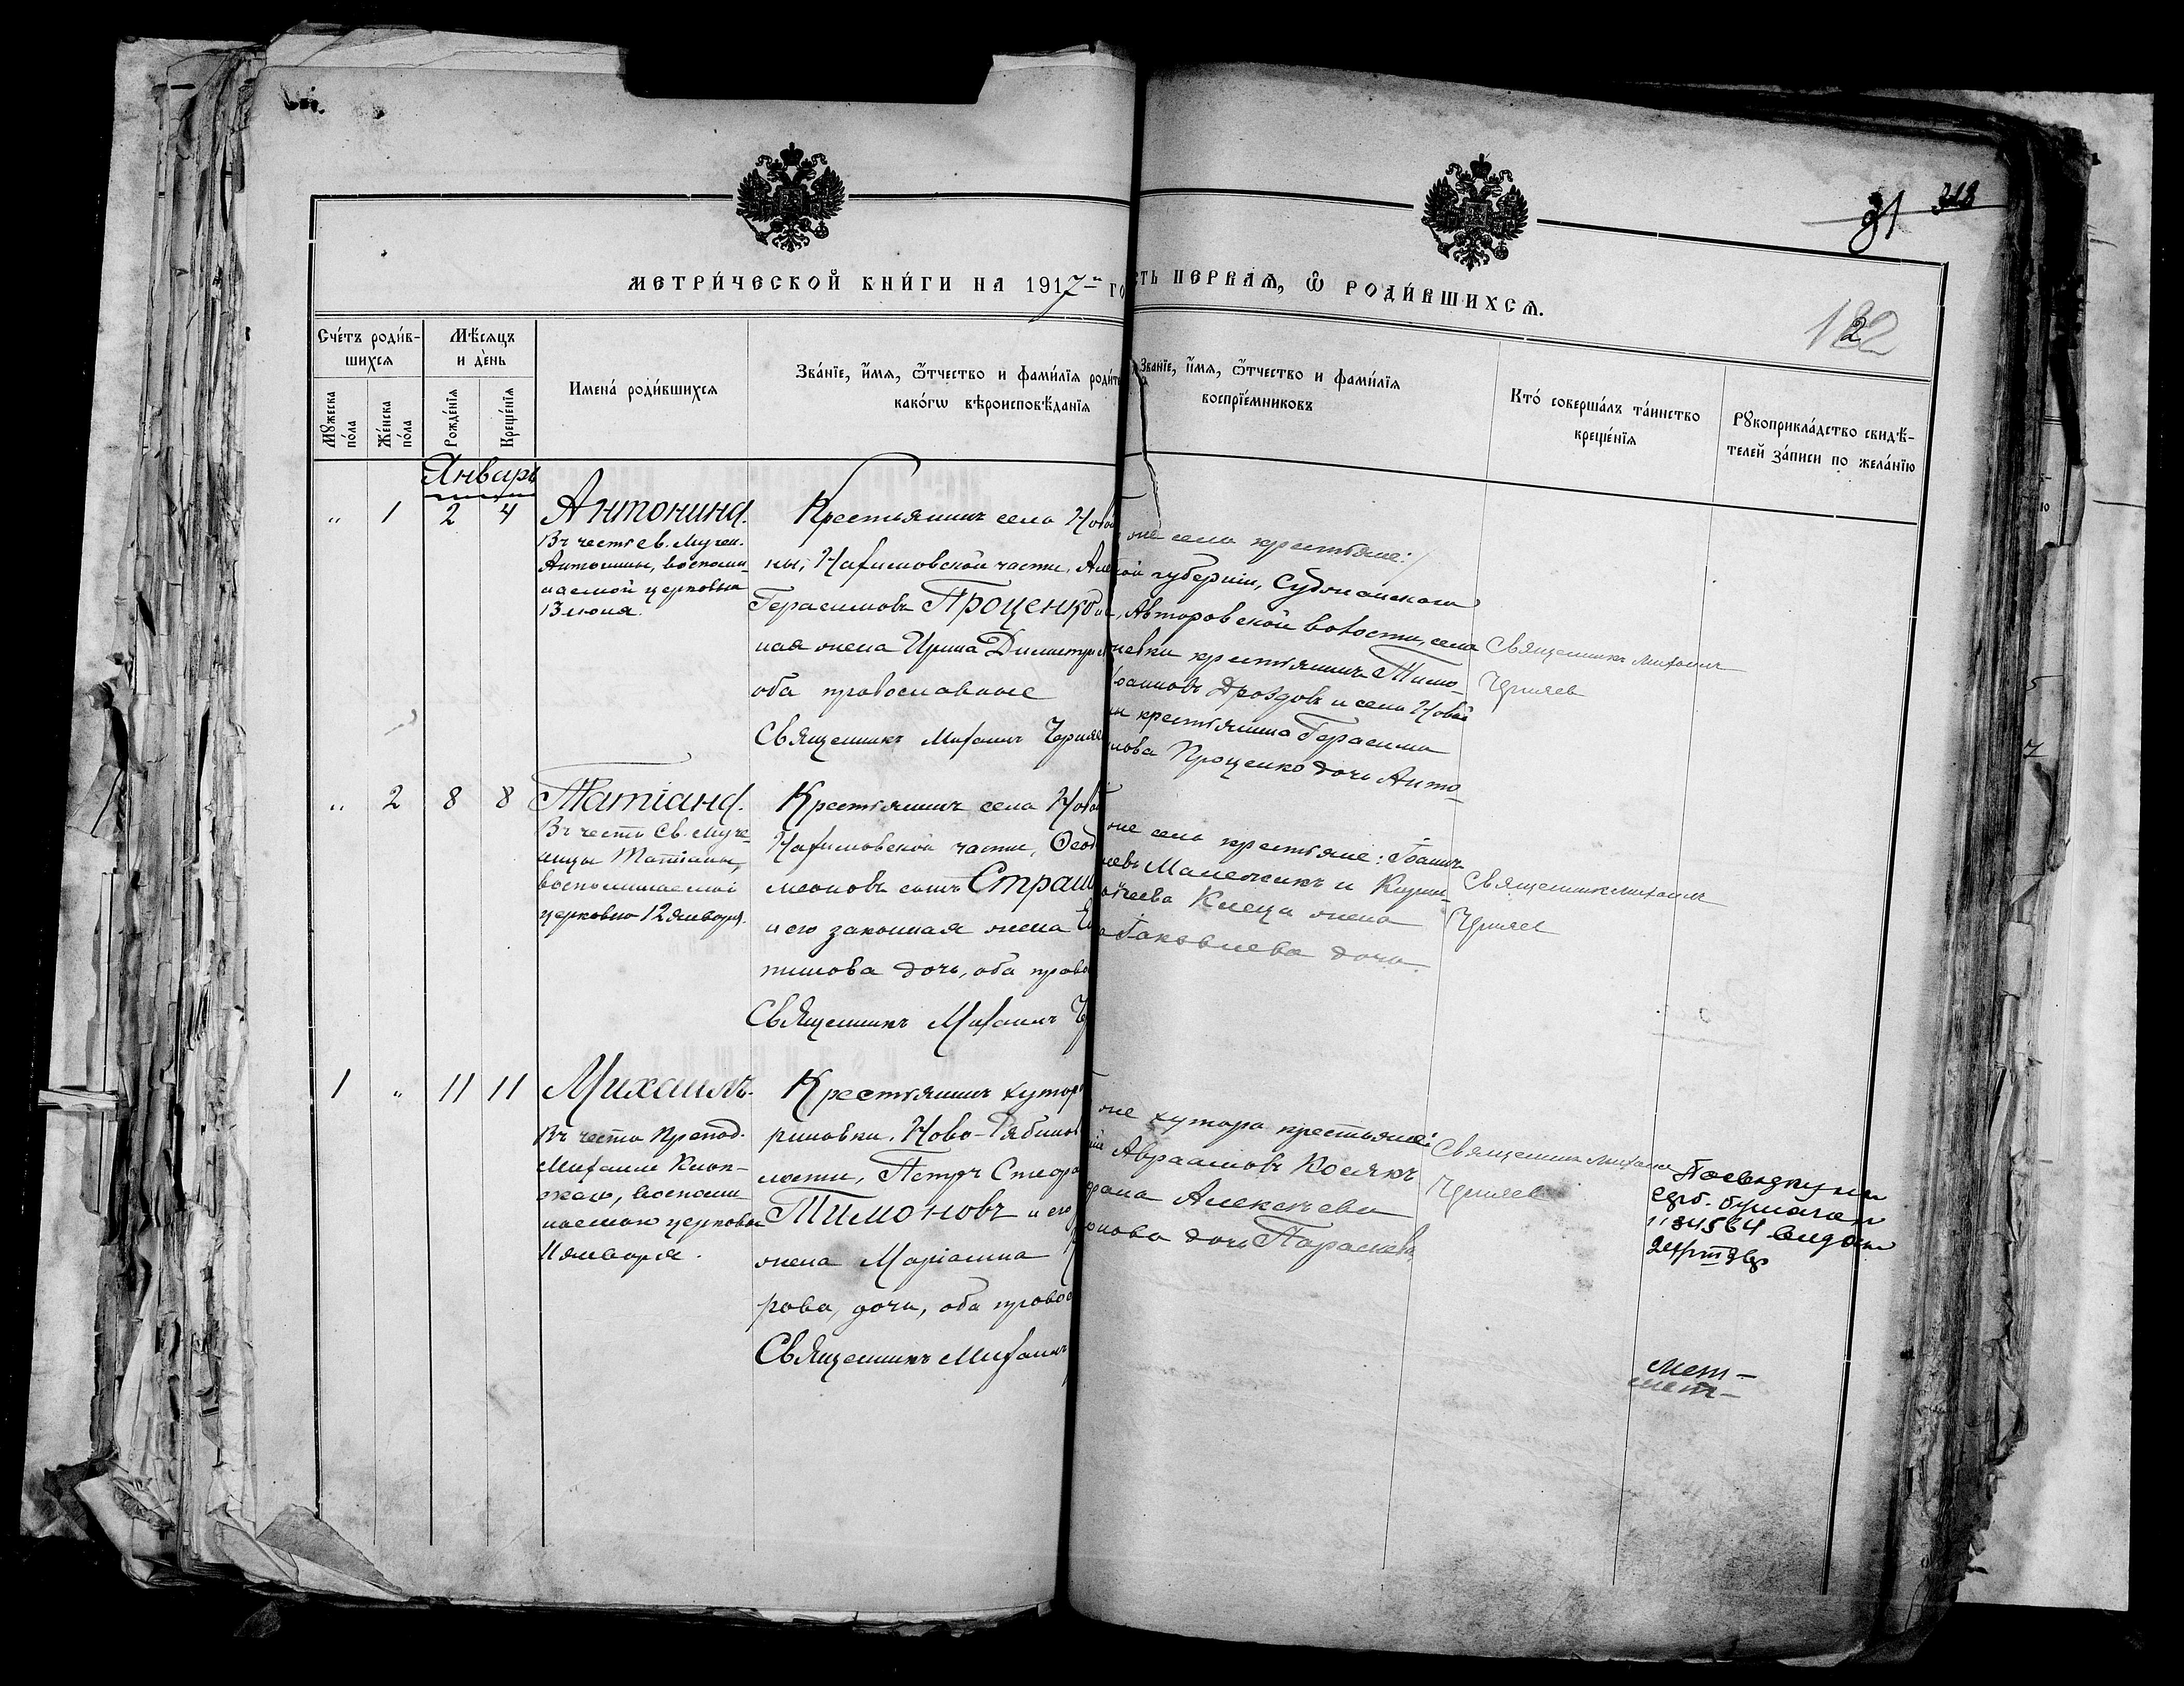 31 318
МЕТРИ́ЧЕСКОЙ КНИ́ГИ НА 1917-й ГО
СТЬ ПЕРВАѦ, Ѿ РОДИ́ВШИХСѦ.
122
Сче́тъ роди́в-
шихся
Мꙋжеска
по́ла
Же́нска
по́ла
Мѣ́сяцъ
и де́нь
Рожде́нїя
Креще́нїя
Имена̀ роди́вшихся
Зва́нїе, и́мя, ѻ҆́тчество и фами́лїя роди́т
како́гѡ вѣроисповѣ́данїя
Зва́нїе, и́мя, ѻ҆́тчество и фами́лїя
воспрїе́мниковъ
Кто̀ соверша́лъ та́инство
креще́нїя
Рꙋкоприкла́дство свидѣ́-
телей за́писи по жела́нїю
Январь
" 1 2 4
Антонина.
Въ честь св. Мучен.
Антонины, воспоми-
наемой церковью
13 июня.
Крестьянинъ села Ново
ны, Нахимовской части, Але
Герасимовъ Проценко и
ная жена Ирина Димитри
оба православные
Священникъ Михаилъ Черняе
оне села крестьяне:
кой губернии, Суджанскаго
Авторовской волости, села
невки крестьянинъ Тимо-
оанновъ Дроздовъ и села Новой
ны крестьянина Герасима
мова Проценко дочь Анто-
Священникъ Михаилъ
Черняев
" 2 8 8
Татіана.
Въ честь Св. Муче-
ницы Татіаны,
воспоминаемой
церковью 12 января.
Крестьянинъ села Ново
Нахимовской части, Ѳеод
меоновъ сынъ Страш
и его законная жена Е
тимова дочь, оба право
Священникъ Михаилъ Ч
оне села крестьяне: Іоаннъ
левъ Маленжикъ и Кирил-
ѳеева Клеца жена
Іаковлева дочь.
Священникъ Михаилъ
Черняев
1 " 11 11
Михаилъ.
Въ честь Препод.
Михаила Клоп-
скаго, воспоми-
наемаго церковью
11 января.
Крестьянинъ хутор
риновки, Ново-Рябинов
лости, Петръ Стефа
Тимоновъ и его
жена Маріанна
рова, дочь, оба правос
Священникъ Михаилъ
оне хутора крестьяне:
Авраамовъ Косякъ
Алексѣева
онова дочь Параскев
Священникъ Михаил
Черняев
мет-
мет-